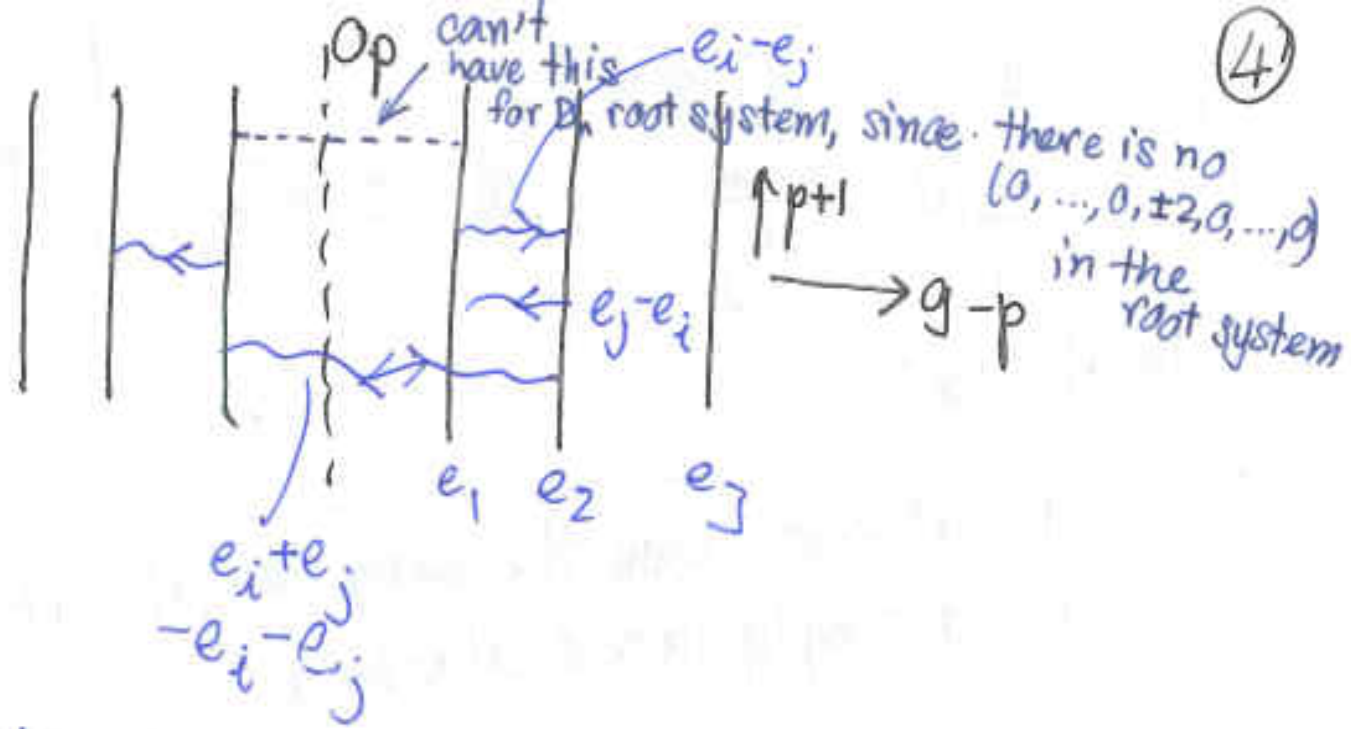 Op
④
can't
have this
for Dn root system, since there is no
(0, ..., 0, ±2, 0, ..., 0)
in the
root system
e_i - e_j
↑ p+1
→ 9-p
e_j - e_i
e_1 e_2 e_3
e_i + e_j
-e_i - e_j